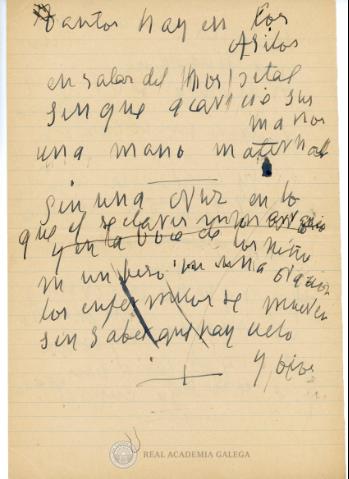 tantos hay en los
Asilos
en salas del Hospital
sin que acaricie sus
manos
una mano maternal
Sin una cruz en lo
que
y en la voz de los niño
ni un beso ni una oración
los enfermitos se mueren
sin saber que hay cielo
y
REAL ACADEMIA GALEGA